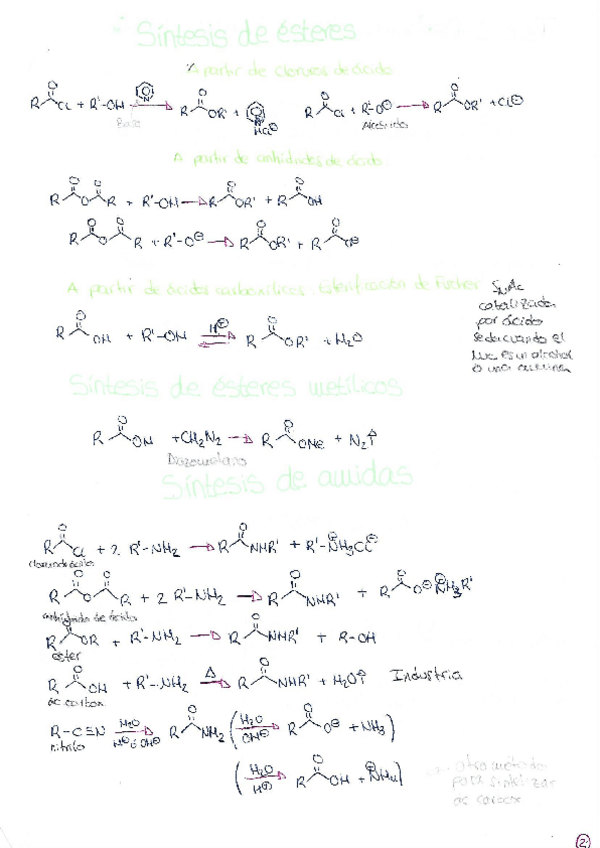 Síntesis de ésteres
A partir de cloruros de ácido
R Cl + R'-OH → R OR' + HCl⊖
Base
R Cl + R'-O⊖ → R OR' + Cl⊖
Alcóxido
A partir de anhídridos de ácido
R O R + R'-OH → R OR' + R OH
R O R + R'-O⊖ → R OR' + R O⊖
A partir de ácidos carboxílicos. Esterificación de Fischer
R OH + R'-OH H⊕ ⇌ R OR' + H2O
SuAc
catalizada
por ácido
se da cuando el
Nuc es un alcohol
o una amina
Síntesis de ésteres metílicos
R OH + CH2N2 → R OMe + N2↑
Diazometano
Síntesis de amidas
R Cl + 2 R'-NH2 → R NHR' + R'-NH3Cl⊖
cloruro de ácido
R O R + 2 R'-NH2 → R NHR' + R O⊖ NH3R'
anhídrido de ácido
R OR + R'-NH2 → R NHR' + R-OH
éster
R OH + R'-NH2 Δ → R NHR' + H2O↑ Industria
ác carbox
R-C≡N H2O H⊕ ó OH⊖ → R NH2 ( H2O OH⊖ → R O⊖ + NH3 )
nitrilo
( H2O H⊕ → R OH + NH4 )
otro método
para sintetizar
ác carbox
2